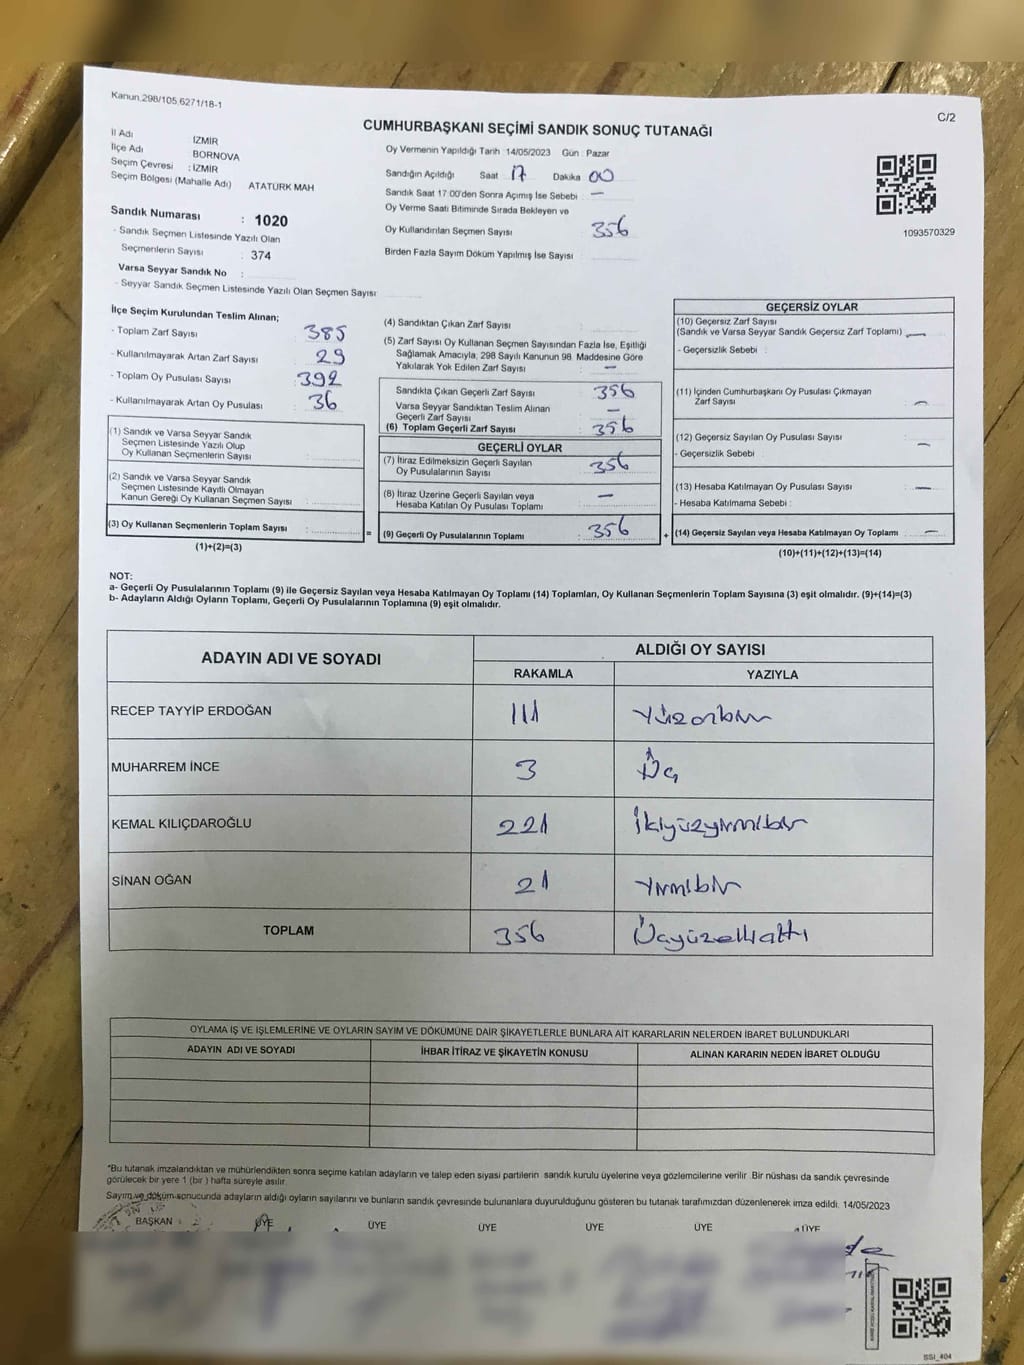 Kanun.298/105,6271/18-1
C/2
CUMHURBAŞKANI SEÇİMİ SANDIK SONUÇ TUTANAĞI
İl Adı İZMİR
İlçe Adı BORNOVA
Seçim Çevresi : İZMİR
Seçim Bölgesi (Mahalle Adı) ATATÜRK MAH
Oy Vermenin Yapıldığı Tarih 14/05/2023 Gün : Pazar
Sandığın Açıldığı Saat 17 Dakika 00
Sandık Saat 17:00'den Sonra Açımış İse Sebebi : —
Oy Verme Saati Bitiminde Sırada Bekleyen ve
Oy Kullandırılan Seçmen Sayısı 356
Birden Fazla Sayım Döküm Yapılmış İse Sayısı :
1093570329
Sandık Numarası : 1020
- Sandık Seçmen Listesinde Yazılı Olan
Seçmenlerin Sayısı : 374
Varsa Seyyar Sandık No :
- Seyyar Sandık Seçmen Listesinde Yazılı Olan Seçmen Sayısı :
İlçe Seçim Kurulundan Teslim Alınan;
- Toplam Zarf Sayısı 385
- Kullanılmayarak Artan Zarf Sayısı : 29
- Toplam Oy Pusulası Sayısı : 392
- Kullanılmayarak Artan Oy Pusulası : 36
(1) Sandık ve Varsa Seyyar Sandık
Seçmen Listesinde Yazılı Olup
Oy Kullanan Seçmenlerin Sayısı :
(2) Sandık ve Varsa Seyyar Sandık
Seçmen Listesinde Kayıtlı Olmayan
Kanun Gereği Oy Kullanan Seçmen Sayısı :
(3) Oy Kullanan Seçmenlerin Toplam Sayısı :
(1)+(2)=(3)
=
(4) Sandıktan Çıkan Zarf Sayısı :
(5) Zarf Sayısı Oy Kullanan Seçmen Sayısından Fazla İse, Eşitliği
Sağlamak Amacıyla, 298 Sayılı Kanunun 98. Maddesine Göre
Yakılarak Yok Edilen Zarf Sayısı : —
Sandıkta Çıkan Geçerli Zarf Sayısı : 356
Varsa Seyyar Sandıktan Teslim Alınan
Geçerli Zarf Sayısı : —
(6) Toplam Geçerli Zarf Sayısı : 356
GEÇERLİ OYLAR
(7) İtiraz Edilmeksizin Geçerli Sayılan
Oy Pusulalarının Sayısı : 356
(8) İtiraz Üzerine Geçerli Sayılan veya
Hesaba Katılan Oy Pusulası Toplamı : —
(9) Geçerli Oy Pusulalarının Toplamı : 356
+
GEÇERSİZ OYLAR
(10) Geçersiz Zarf Sayısı
(Sandık ve Varsa Seyyar Sandık Geçersiz Zarf Toplamı) : —
- Geçersizlik Sebebi :
(11) İçinden Cumhurbaşkanı Oy Pusulası Çıkmayan
Zarf Sayısı : —
(12) Geçersiz Sayılan Oy Pusulası Sayısı : —
- Geçersizlik Sebebi :
(13) Hesaba Katılmayan Oy Pusulası Sayısı : —
- Hesaba Katılmama Sebebi :
(14) Geçersiz Sayılan veya Hesaba Katılmayan Oy Toplamı : —
(10)+(11)+(12)+(13)=(14)
NOT:
a- Geçerli Oy Pusulalarının Toplamı (9) ile Geçersiz Sayılan veya Hesaba Katılmayan Oy Toplamı (14) Toplamları, Oy Kullanan Seçmenlerin Toplam Sayısına (3) eşit olmalıdır. (9)+(14)=(3)
b- Adayların Aldığı Oyların Toplamı, Geçerli Oy Pusulalarının Toplamına (9) eşit olmalıdır.
ADAYIN ADI VE SOYADI
ALDIĞI OY SAYISI
RAKAMLA YAZIYLA
RECEP TAYYİP ERDOĞAN 111 Yüzonbir
MUHARREM İNCE 3 Üç
KEMAL KILIÇDAROĞLU 221 İkiyüzyirmibir
SİNAN OĞAN 21 Yirmibir
TOPLAM 356 Üçyüzelliattı
OYLAMA İŞ VE İŞLEMLERİNE VE OYLARIN SAYIM VE DÖKÜMÜNE DAİR ŞİKAYETLERLE BUNLARA AİT KARARLARIN NELERDEN İBARET BULUNDUKLARI
ADAYIN ADI VE SOYADI İHBAR İTİRAZ VE ŞİKAYETİN KONUSU ALINAN KARARIN NEDEN İBARET OLDUĞU
*Bu tutanak imzalandıktan ve mühürlendikten sonra seçime katılan adayların ve talep eden siyasi partilerin sandık kurulu üyelerine veya gözlemcilerine verilir. Bir nüshası da sandık çevresinde
görülecek bir yere 1 (bir) hafta süreyle asılır.
Sayım ve döküm sonucunda adayların aldığı oyların sayılarını ve bunların sandık çevresinde bulunanlara duyurulduğunu gösteren bu tutanak tarafımızdan düzenlenerek imza edildi. 14/05/2023
BAŞKAN ÜYE ÜYE ÜYE ÜYE ÜYE ÜYE
SSI_404